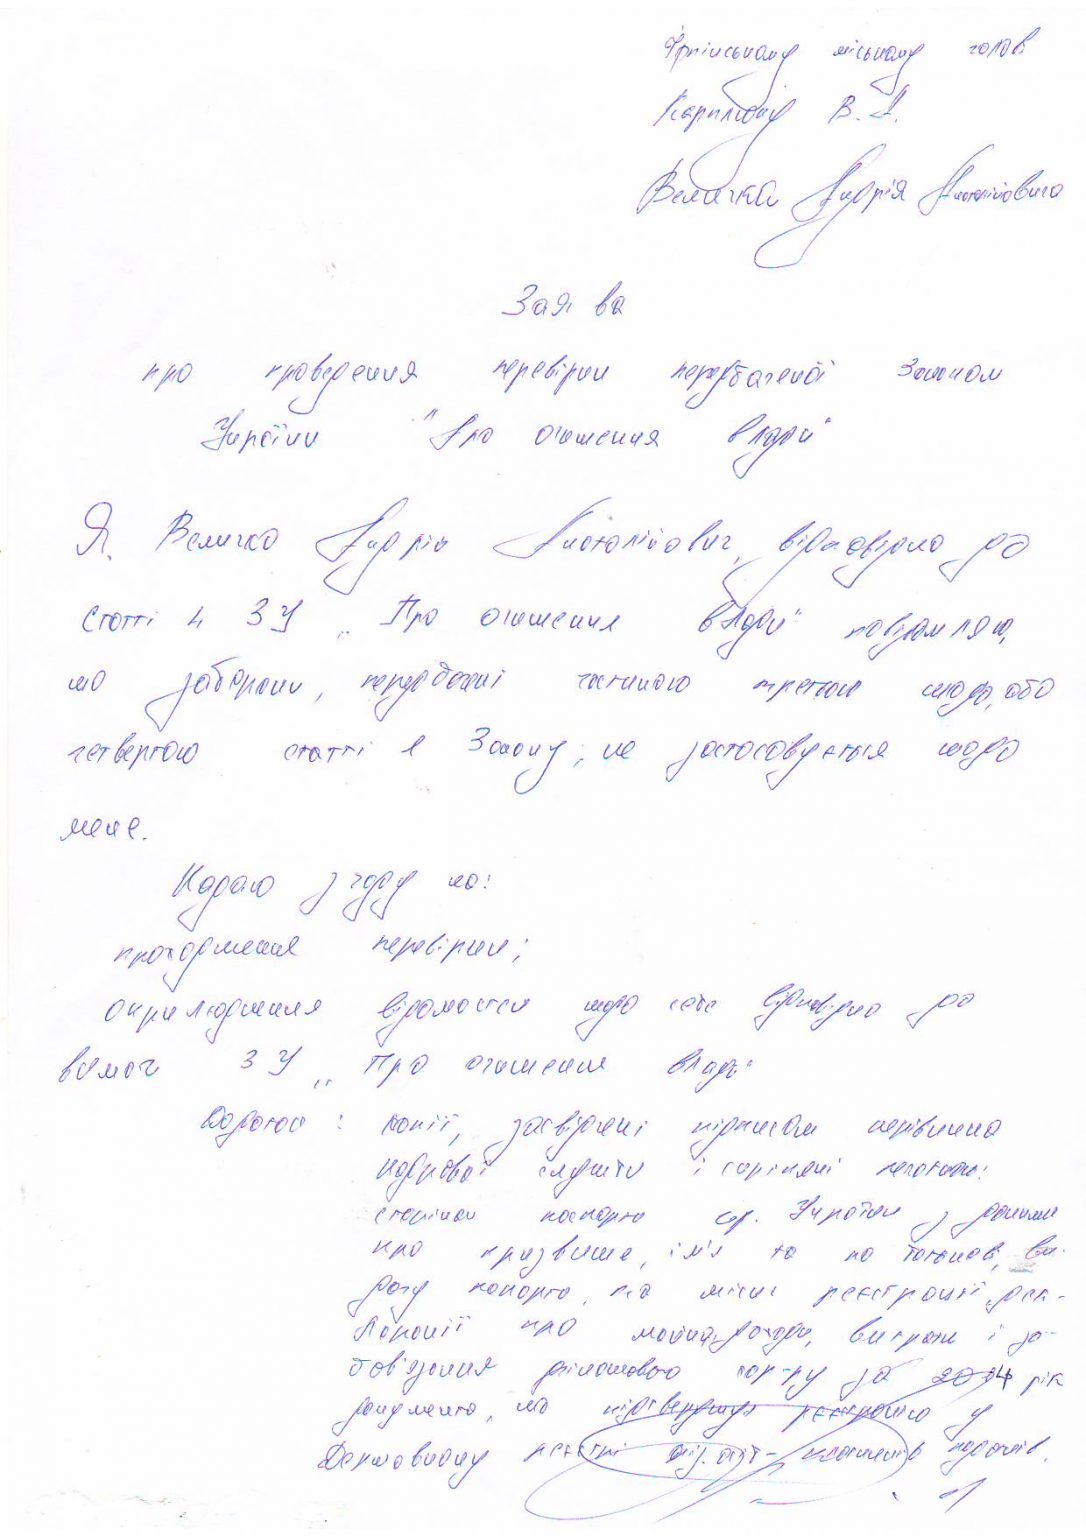 Ірпінському міському голові
Карплюку В. А.
Величка Андрія Анатолійовича
Заява
про проведення перевірки передбаченої Законом
України "Про очищення влади"
Я, Величко Андрій Анатолійович, відповідно до
статті 4 ЗУ „Про очищення влади" повідомляю,
що заборони, передбачені частиною третьою щодо, або
четвертою статті 1 Закону, не застосовуються щодо
мене.
Надаю згоду на:
проходження перевірки;
оприлюднення відомостей щодо себе відповідно до
вимог ЗУ „Про очищення влади"
Додатки: копії, засвідчені підписом керівника
кадрової служби і скріплені печаткою:
сторінки паспорта гр. України з даними
про прізвище, ім'я та по батькові, ви-
дачу паспорта, та місце реєстрації, дек-
ларації про майно, доходи, витрати і зо-
бов'язання фінансового хар-ру за 2014 рік
документа, що підтверджує реєстрацію у
Державному реєстрі фіз. осіб - платників податків.